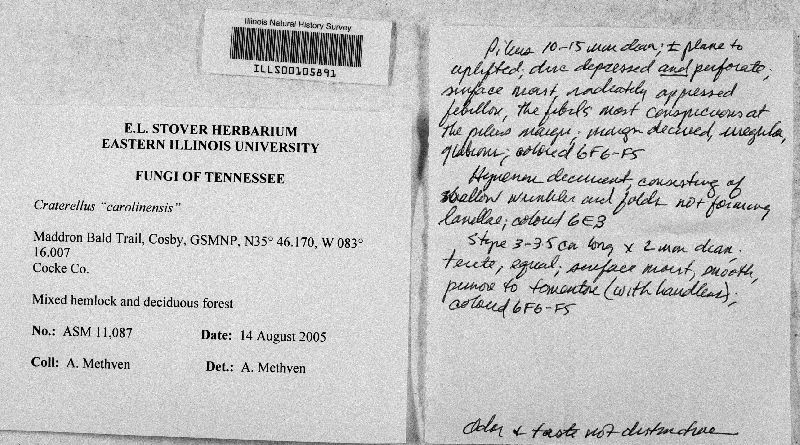 Illinois Natural History Survey
ILLS00105891
E.L. STOVER HERBARIUM
EASTERN ILLINOIS UNIVERSITY
FUNGI OF TENNESSEE
Craterellus "carolinensis"
Maddron Bald Trail, Cosby, GSMNP, N35° 46.170, W 083°
16.007
Cocke Co.
Mixed hemlock and deciduous forest
No.: ASM 11,087 Date: 14 August 2005
Coll: A. Methven Det.: A. Methven
Pileus 10-15 mm diam; ± plane to
uplifted; disc depressed and perforate;
surface moist, radiately appressed
fibrillose, the fibrils most conspicuous at
the pileus margin; margin decurved, irregular,
glabrous; colored 6F6-F5
Hymenium decurrent, consisting of
shallow wrinkles and folds not forming
lamellae; colored 6E3
Stipe 3-3.5 cm long x 2 mm diam.
terete, equal; surface moist, smooth,
pruinose to tomentose (with handlens);
colored 6F6-F5
Odor & taste not distinctive